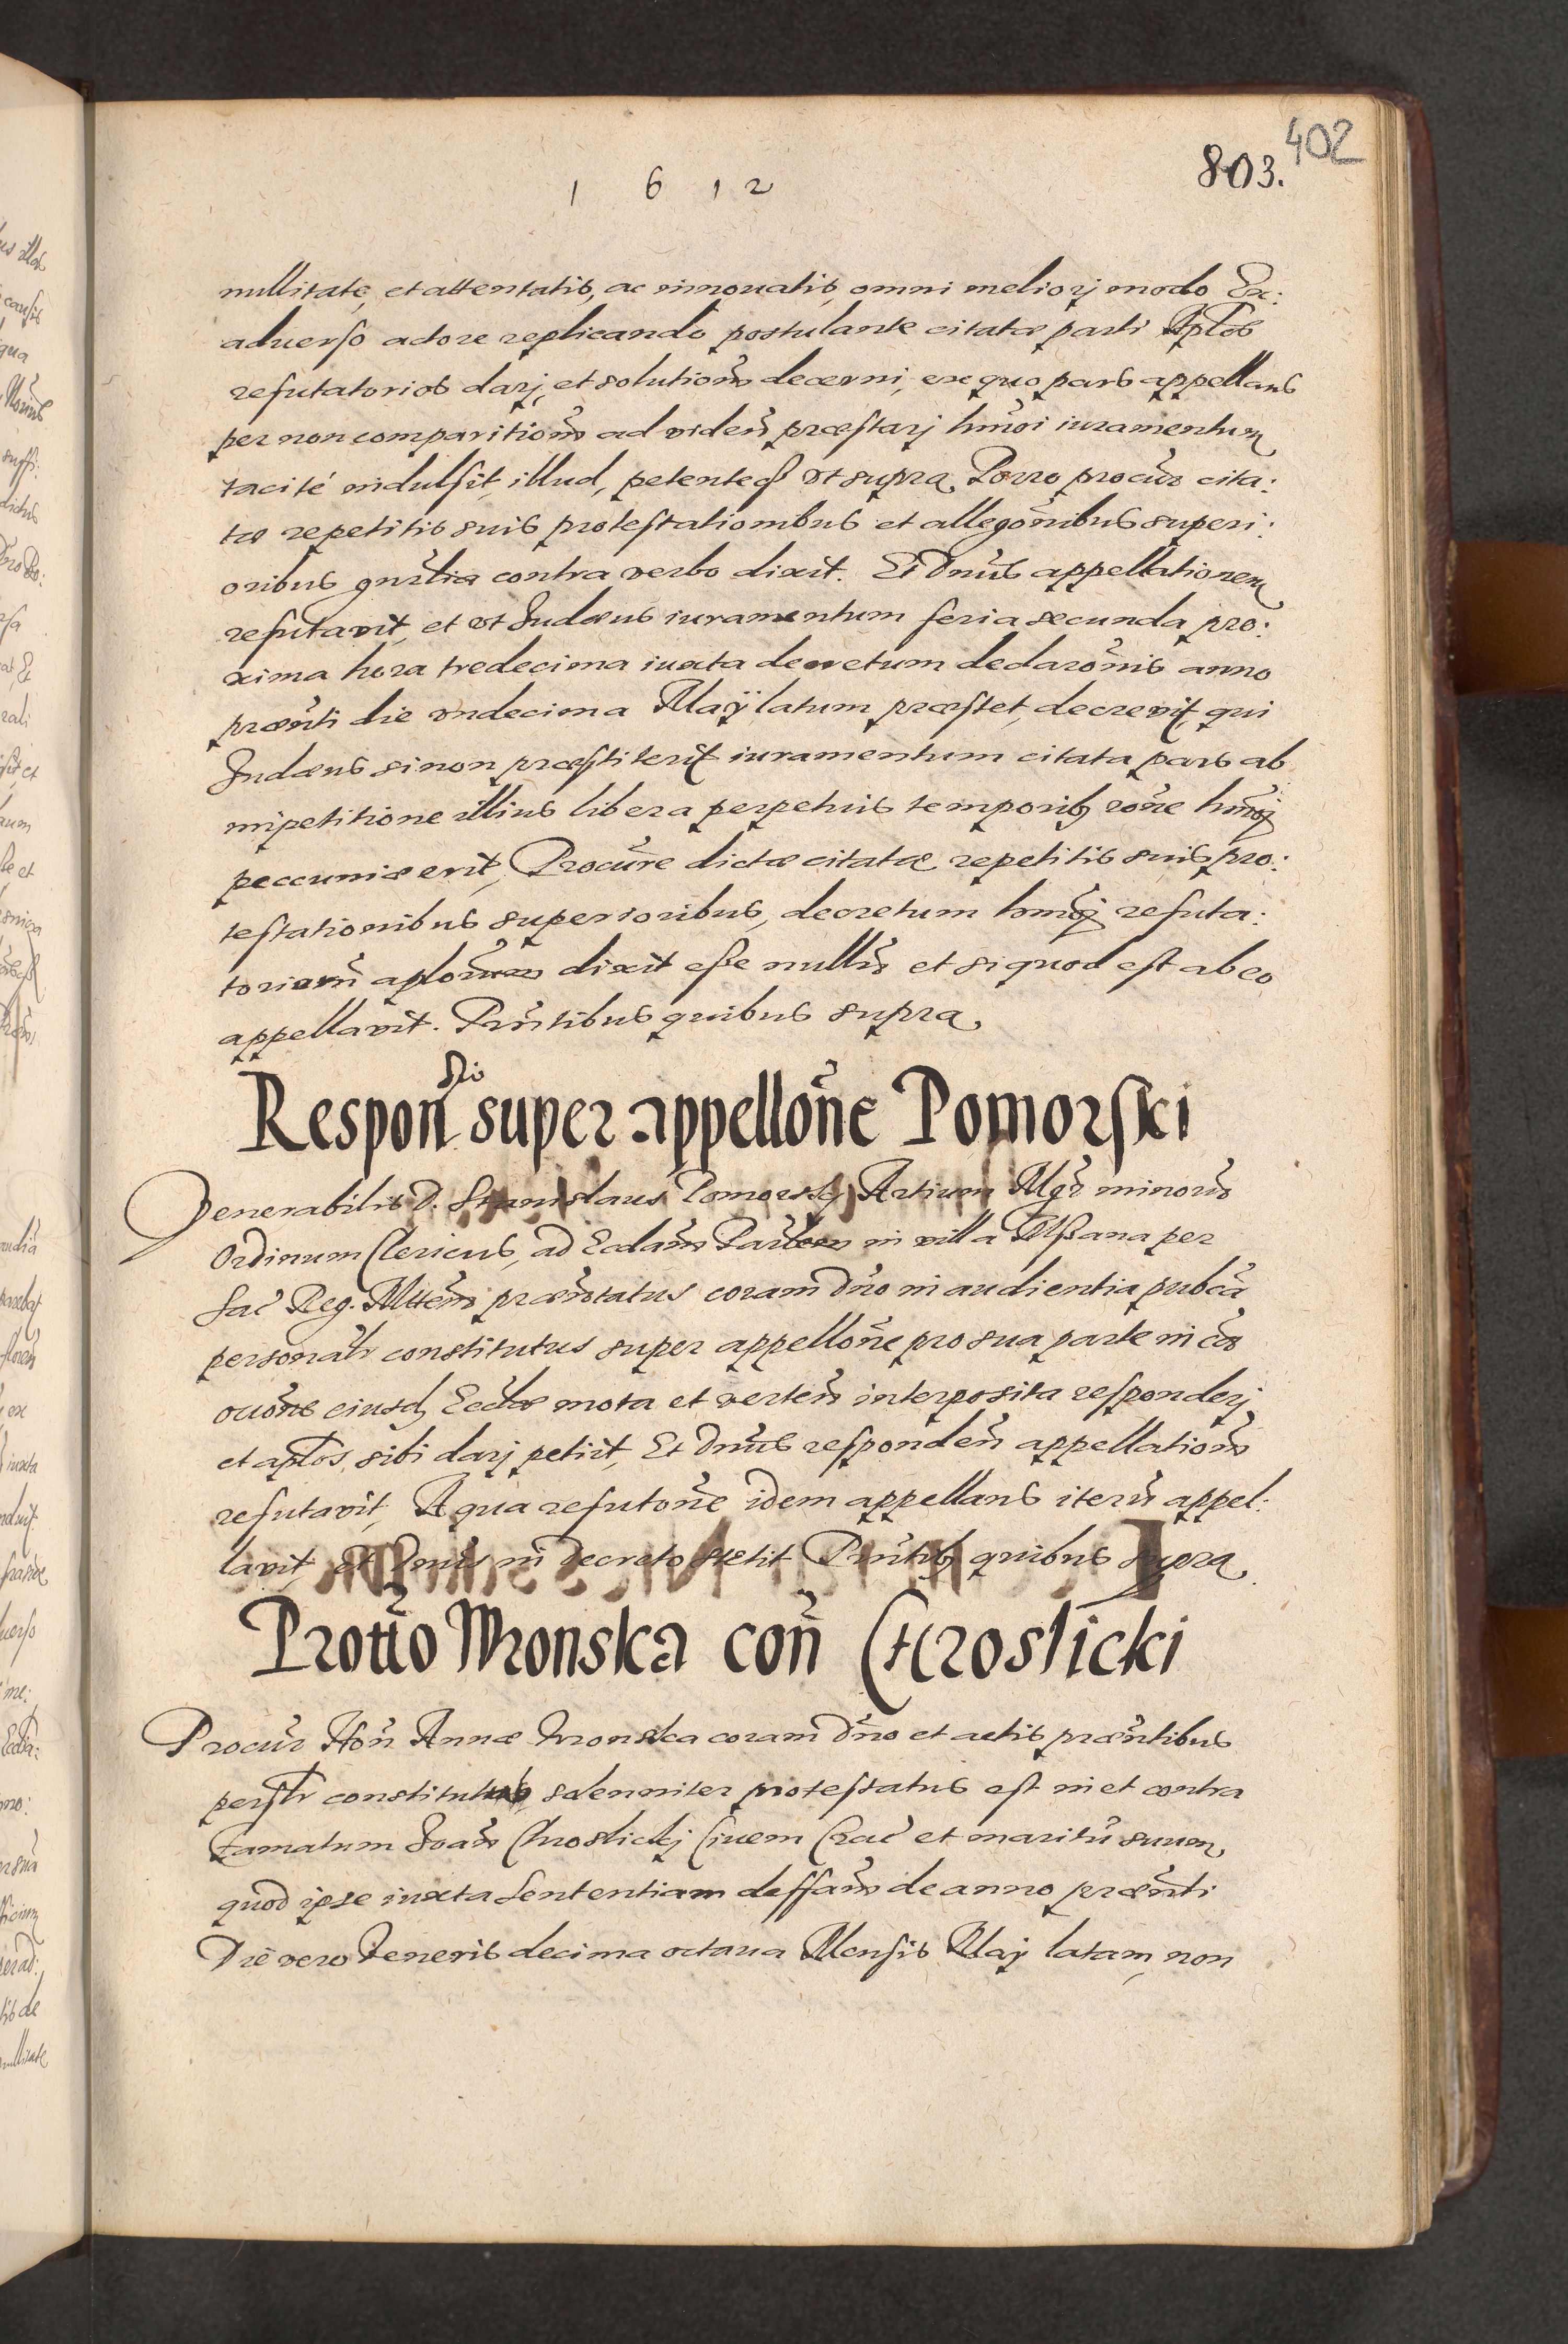 402
1 6 1 2
803.
nullitate, et attentatis, ac innouatis, omni meliorj modo Ex:
aduerso actore replicando postulante citatæ parti Aplos
refutatorios darj, et solutionẽ decerni, ex quo pars appellans
per non comparitionẽ ad videñ præstarj hmõi iuramentum
tacité indulsit, illud, petenteq; vt supra, Porro procũr cita:
tæ repetitis suis protestationibus et allegõnibus superi:
oribus contra verbo dixit. Et Dnũs appellationem
refutavit, et vt Iudæus iuramentum feria secunda pro:
xima hora tredecima iuxta decretum declarõnis anno
præñti die vndecima Maÿ latum præstet, decrevit, qui
Iudæus si non præstiterit iuramentum citata pars ab
impetitione illius libera perpetuis temporib; rõne hmõj
peccuniæ erit, Procũre dictæ citatæ repetitis suis pro:
testationibus superioribus, decretum hmõj refuta:
toriorũ aplorum dixit esse nullũ et si quod est ab eo
appellavit. Pñtibus quibus supra
Responsio super appellõne Pomorski
Venerabilis D. Stanislaus Pomorskj Artium Mgr̃ minorũ
Ordinum Clericus, ad Ecclãm Parlem in villa Mszana per
Sac̃ Reg. Mttem præsẽntatus coram Dño in audientia pubcã
personalr constitutus super appellõne pro sua parte in cã
eiusd; Ecclæ mota et verteñ interposita responderj
et aplos sibi darj petiit, Et Dnũs respondeñ appellationẽ
refutavit, A qua refutõne idem appellans iterũ appel:
lavit, et Dnũs in decreto stetit Pñtib; quibus supra
Prottõ Wronska coñ Chroslicki
Procũr Hoñ Annæ Wronska coram Dño et actis præñtibus
perslr constitutus solenniter protestatus est in et contra
Famatum Ioañ Chroslickj Ciuem Crac̃ et maritũ suum,
quod ipse iuxta Sententiam deffãm de anno præñti
Die vero Veneris decima octaua Mensis Maij latam, non